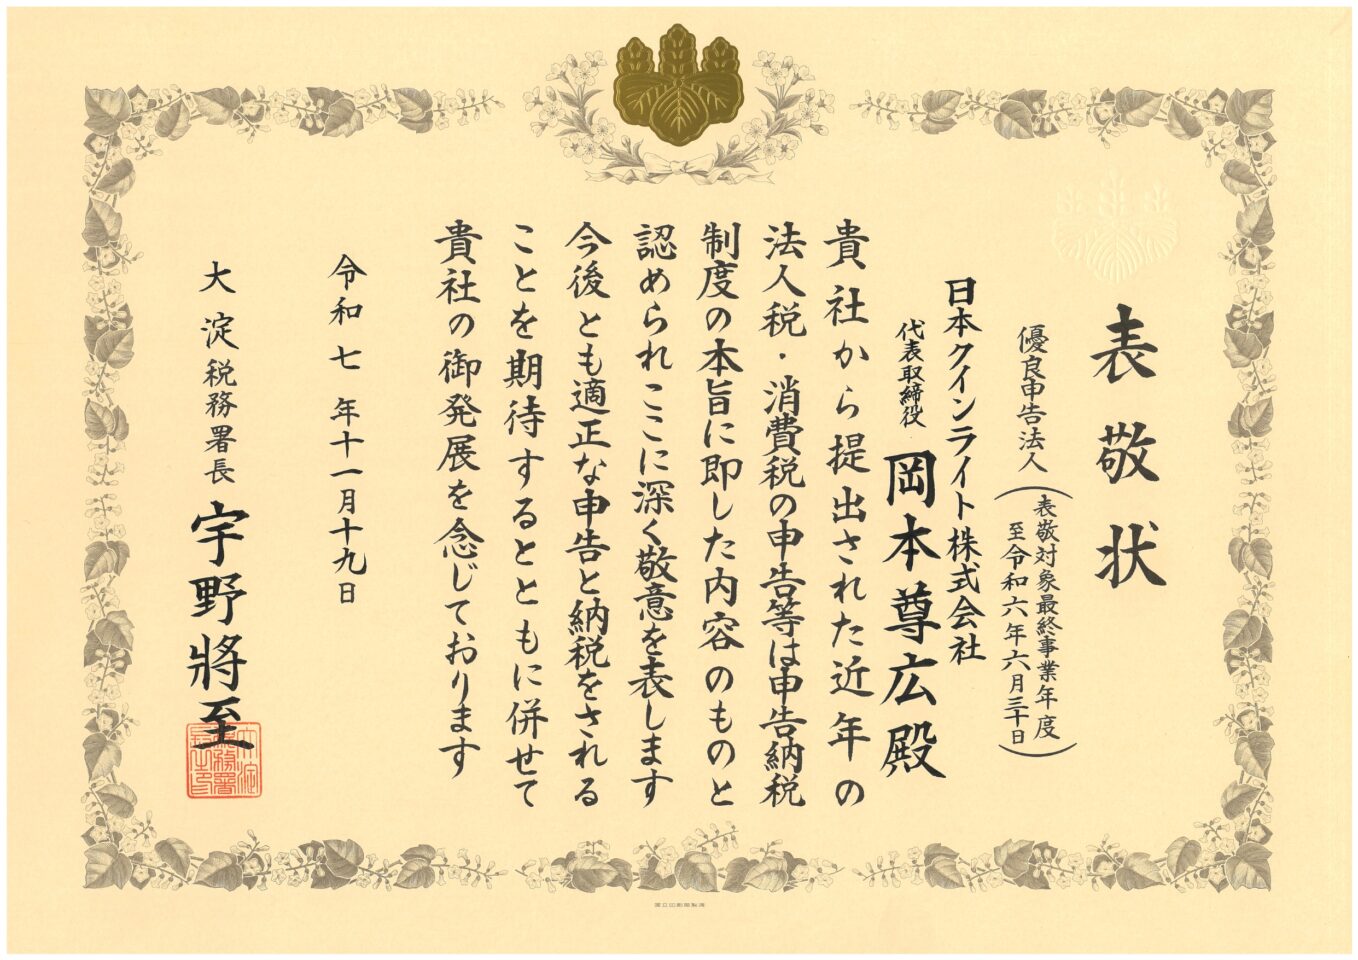 表敬状
優良申告法人（表敬対象最終事業年度
至令和六年六月三十日）
日本クインライト株式会社
代表取締役 岡本尊広殿
貴社から提出された近年の
法人税・消費税の申告等は申告納税
制度の本旨に即した内容のものと
認められここに深く敬意を表します
今後とも適正な申告と納税をされる
ことを期待するとともに併せて
貴社の御発展を念じております
令和七年十一月十九日
大淀税務署長 宇野將至
大淀
税務署
長之印
国立印刷局製造